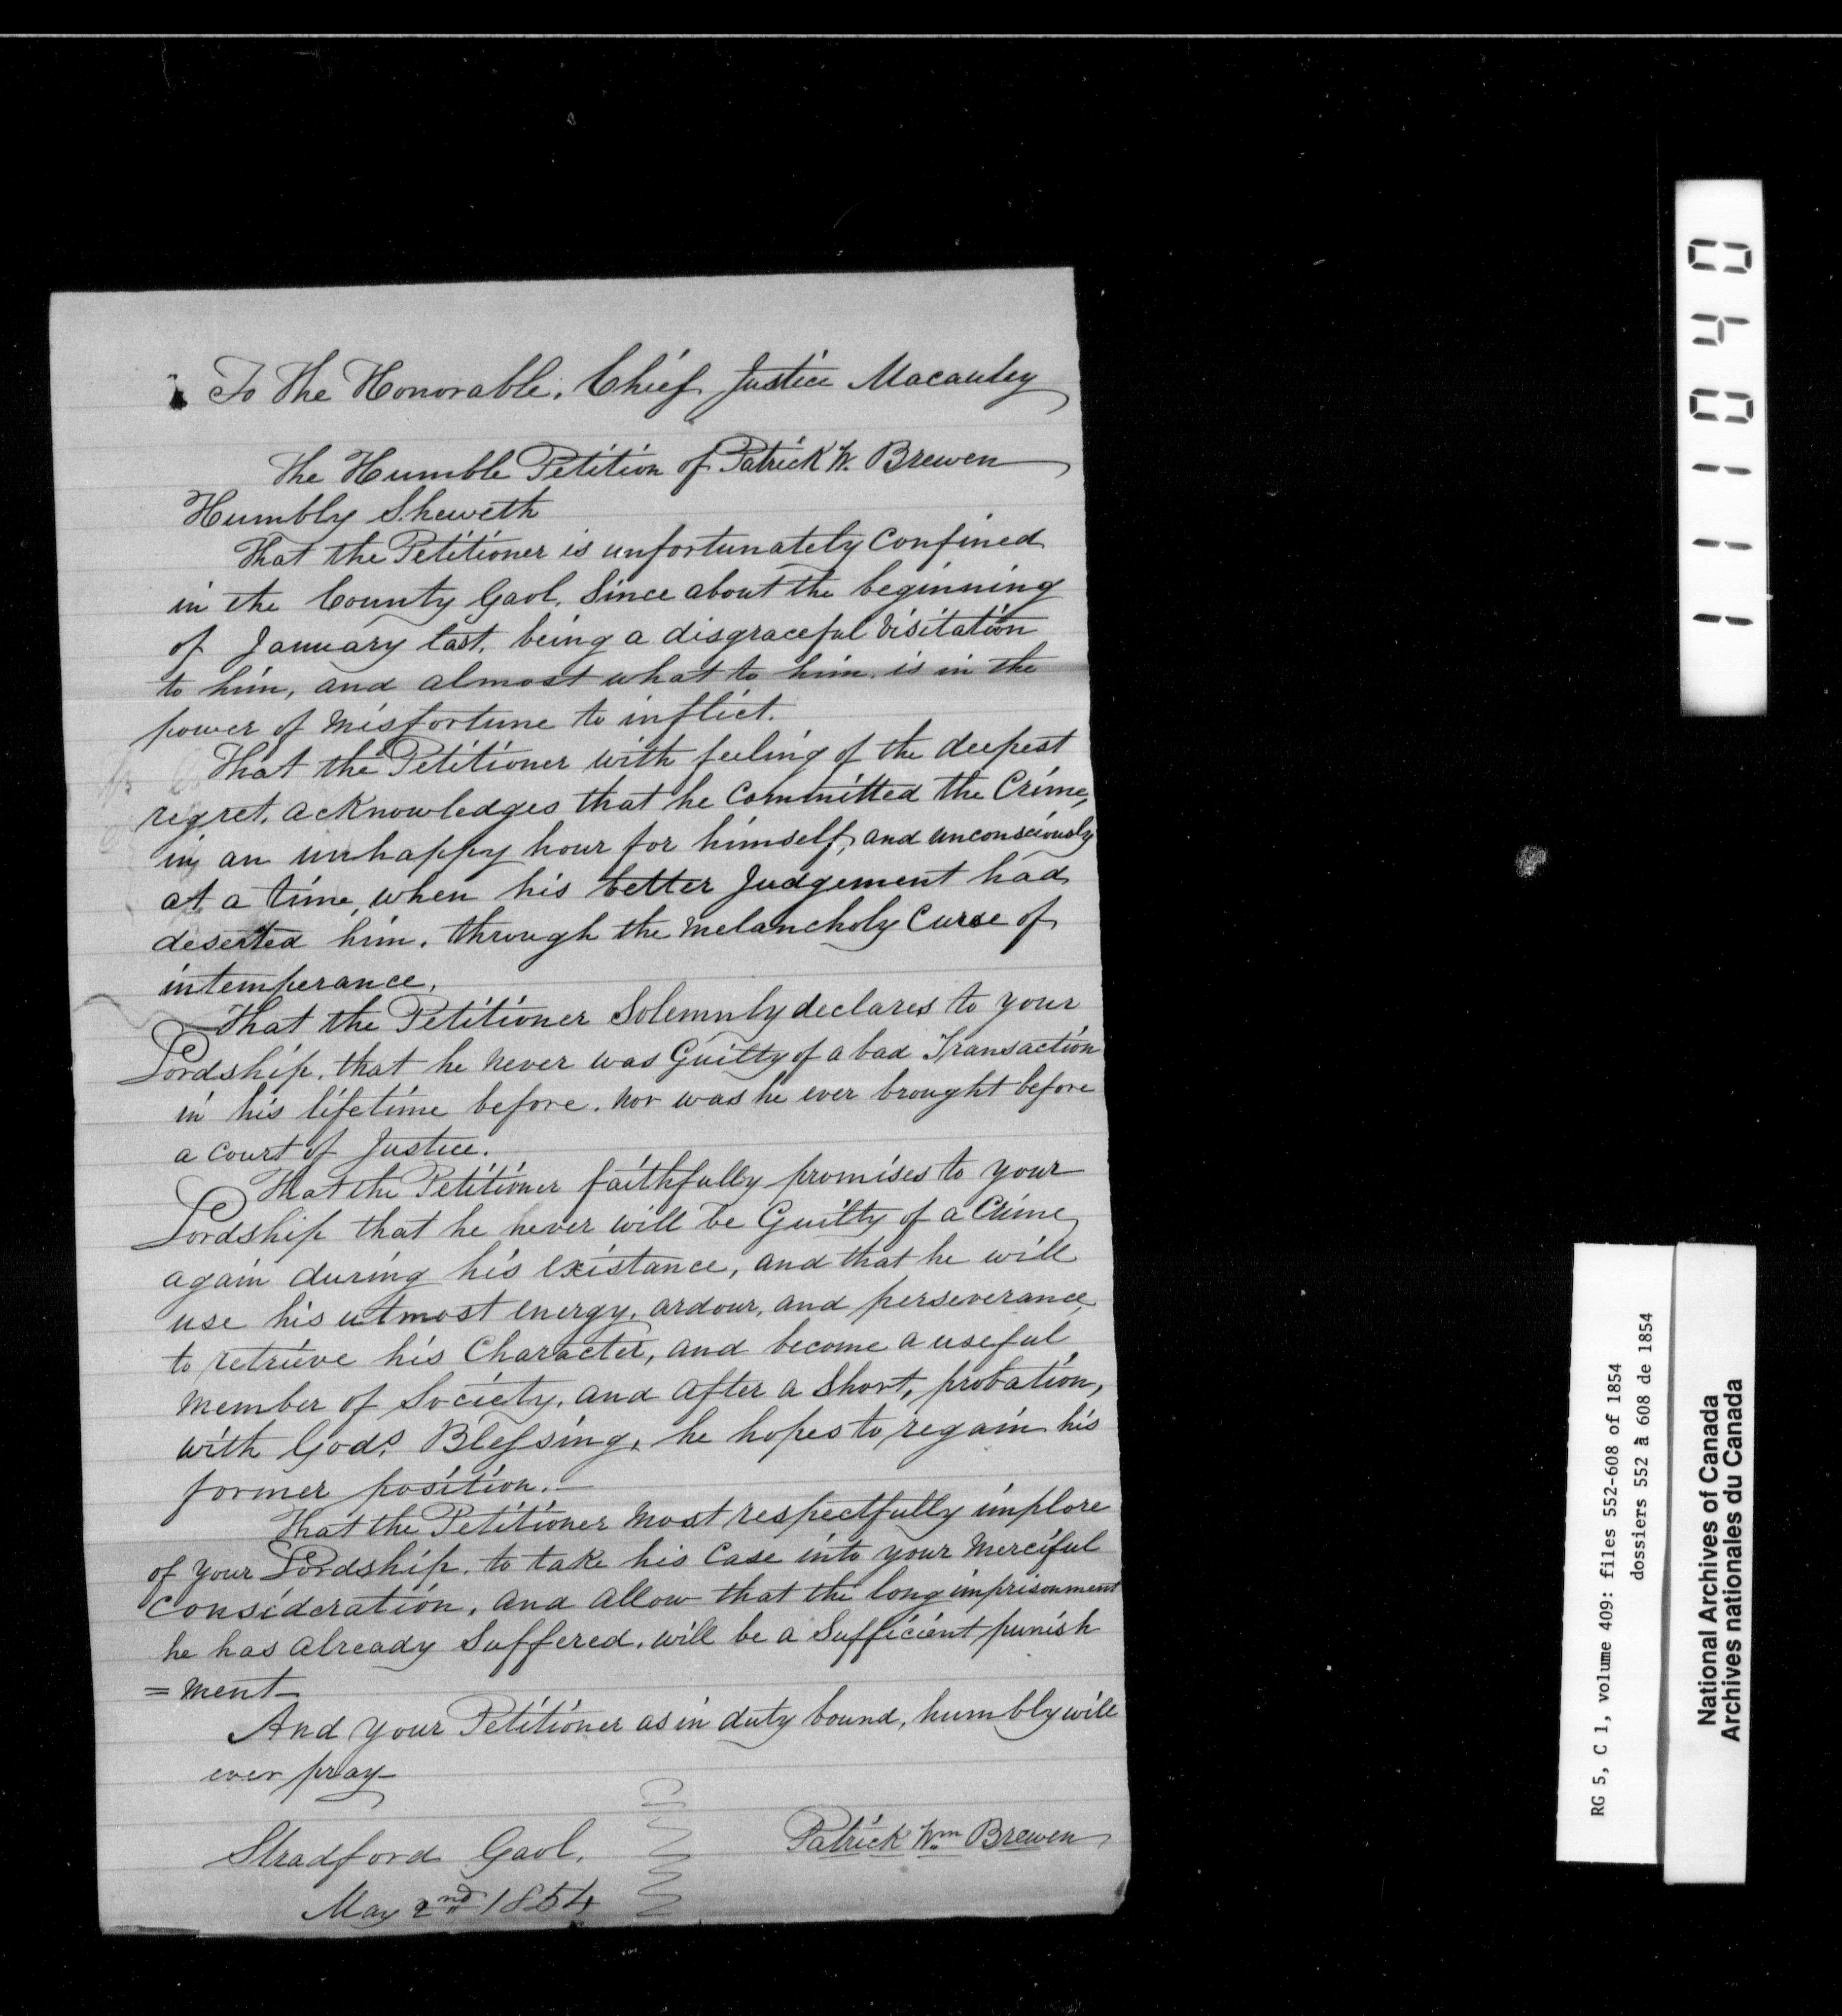 To The Honorable. Chief Justice Macauley
The Humble Petition of Patrick W. Brewen
Humbly Sheweth
That the Petitioner is unfortunately Confined
in the County Gaol. Since about the beginning
of January last. being a disgraceful Visitation
to him, and almost what to him. is in the
power of Misfortune to inflict.
That the Petitioner with feeling of the deepest
regret. acknowledges that he Committed the Crime,
in an unhappy hour for himself, and unconsciously
at a time, when his better Judgement had
deserted him. through the Melancholy Curse of
intemperance.
That the Petitioner Solemnly declares to your
Lordship. that he Never was Guilty of a bad Transaction
in his lifetime before. Nor was he ever brought before
a Court of Justice.
That the Petitioner faithfully promises to your
Lordship that he never will be Guilty of a Crime
again during his existance, and that he will
use his utmost energy. ardour, and perseverance
to retrieve his Character, and become a useful
Member of Society. and after a Short, probation,
with God's Blessing, he hopes to regain his
former position.—
That the Petitioner Most respectfully implore
of your Lordship. to take his Case into your Merciful
Consideration, and allow that the long imprisonment
he has already Suffered. will be a Sufficient punish
=ment—
And your Petitioner as in duty bound, humbly will
ever pray—
Patrick Wm Brewen
Stradford Gaol.
May 2nd 1854
111040
RG 5, C 1, volume 409: files 552-608 of 1854
dossiers 552 à 608 de 1854
National Archives of Canada
Archives nationales du Canada